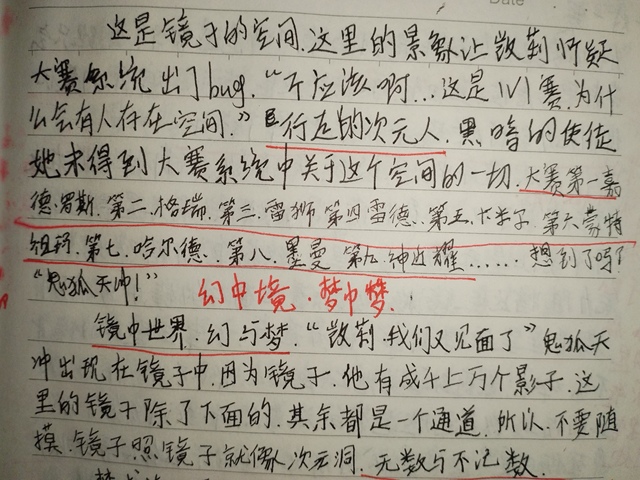 这是镜子的空间.这里的景象让敳莉怀疑
大赛系统出了bug."不应该啊...这是1V1赛.为什
么会有人存在空间."行走的次元人.黑暗的使徒
她未得到大赛系统中关于这个空间的一切.大赛第一嘉
德罗斯.第二.格瑞.第三.雷狮 第四雷德.第五.卡米尔.第六蒙特
祖玛.第七.哈尔德.第八.墨曼 第九神近耀......想到了吗?
"鬼狐天冲!" 幻中境.梦中梦.
镜中世界.幻与梦."敳莉.我们又见面了"鬼狐天
冲出现在镜子中.因为镜子.他有成千上万个影子.这
里的镜子除了下面的.其余都是一个通道.所以.不要随
摸.镜子照镜子就像次元洞.无数与不记数.